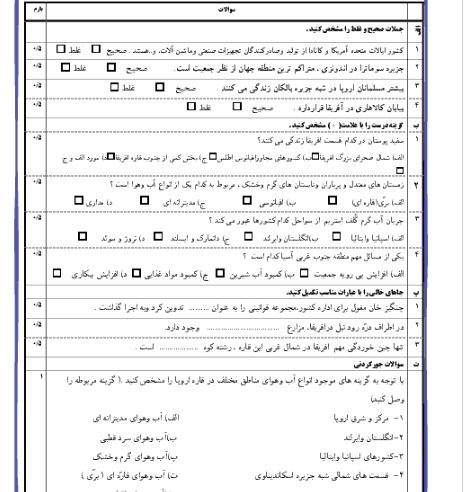 سوالات
بارم
الف
جملات صحیح و غلط را مشخص کنید.
۱ کشور ایالات متحده آمریکا و کانادا از تولید وصادرکنندگان تجهیزات صنعتی وماشین آلات، و..هستند. صحیح □ غلط □ ۰/۵
۲ جزیره سوماترا در اندونزی ، متراکم ترین منطقه جهان از نظر جمعیت است. صحیح □ غلط □ ۰/۵
۳ بیشتر مسلمانان اروپا در شبه جزیره بالکان زندگی می کنند صحیح □ غلط □ ۰/۵
۴ بیابان کالاهاری در آفریقا قراردارد . صحیح □ غلط □ ۰/۵
ب گزینه درست را با علامت( ) مشخص کنید.
۱ سفید پوستان در کدام قسمت افریقا زندگی می کنند؟ ۰/۵
الف) شمال صحرای بزرگ افریقا□ ب) کشورهای مجاوراقیانوس اطلس□ ج) بخش کمی از جنوب قاره افریقا□ د) مورد الف و ج □
۲ زمستان های معتدل و پرباران وتابستان های گرم وخشک ، مربوط به کدام یک از انواع آب وهوا است ؟ ۰/۵
الف) برّی(قاره ای) □ ب) اقیانوسی □ ج) مدیترانه ای □ د) مداری □
۳ جریان آب گرم گلف استریم از سواحل کدام کشورها عبور می کند ؟ ۰/۵
الف) اسپانیا وایتالیا □ ب)انگلستان وایرلند □ ج) دانمارک و ایسلند □ د) نروژ و سوئد □
۴ یکی از مسائل مهم منطقه جنوب غربی آسیا کدام است ؟ ۰/۵
الف) افزایش بی رویه جمعیت □ ب) کمبود آب شیرین □ ج) کمبود مواد غذایی □ د) افزایش بیکاری □
پ جاهای خالی را با عبارات مناسب تکمیل کنید.
۱ چنگیز خان مغول برای اداره کشور،مجموعه قوانینی را به عنوان ......... تدوین کرد وبه اجرا گذاشت . ۰/۵
۲ در اطراف درّه رود نیل درافریقا، مزارع .................................. وجود دارد. ۰/۵
۳ تنها چین خوردگی مهم افریقا در شمال غربی این قاره ، رشته کوه .................. است . ۰/۵
ت سوالات جورکردنی
با توجه به گزینه های موجود انواع آب وهوای مناطق مختلف در قاره اروپا را مشخص کنید .( گزینه مربوطه را ۱
وصل کنید)
۱- مرکز و شرق اروپا الف) آب وهوای مدیترانه ای
۲-انگلستان وایرلند ب)آب وهوای سرد قطبی
۳-کشورهای اسپانیا وایتالیا پ)آب وهوای گرم وخشک
۴- قسمت های شمالی شبه جزیره اسکاندیناوی ت) آب وهوای قارّه ای ( برّی )